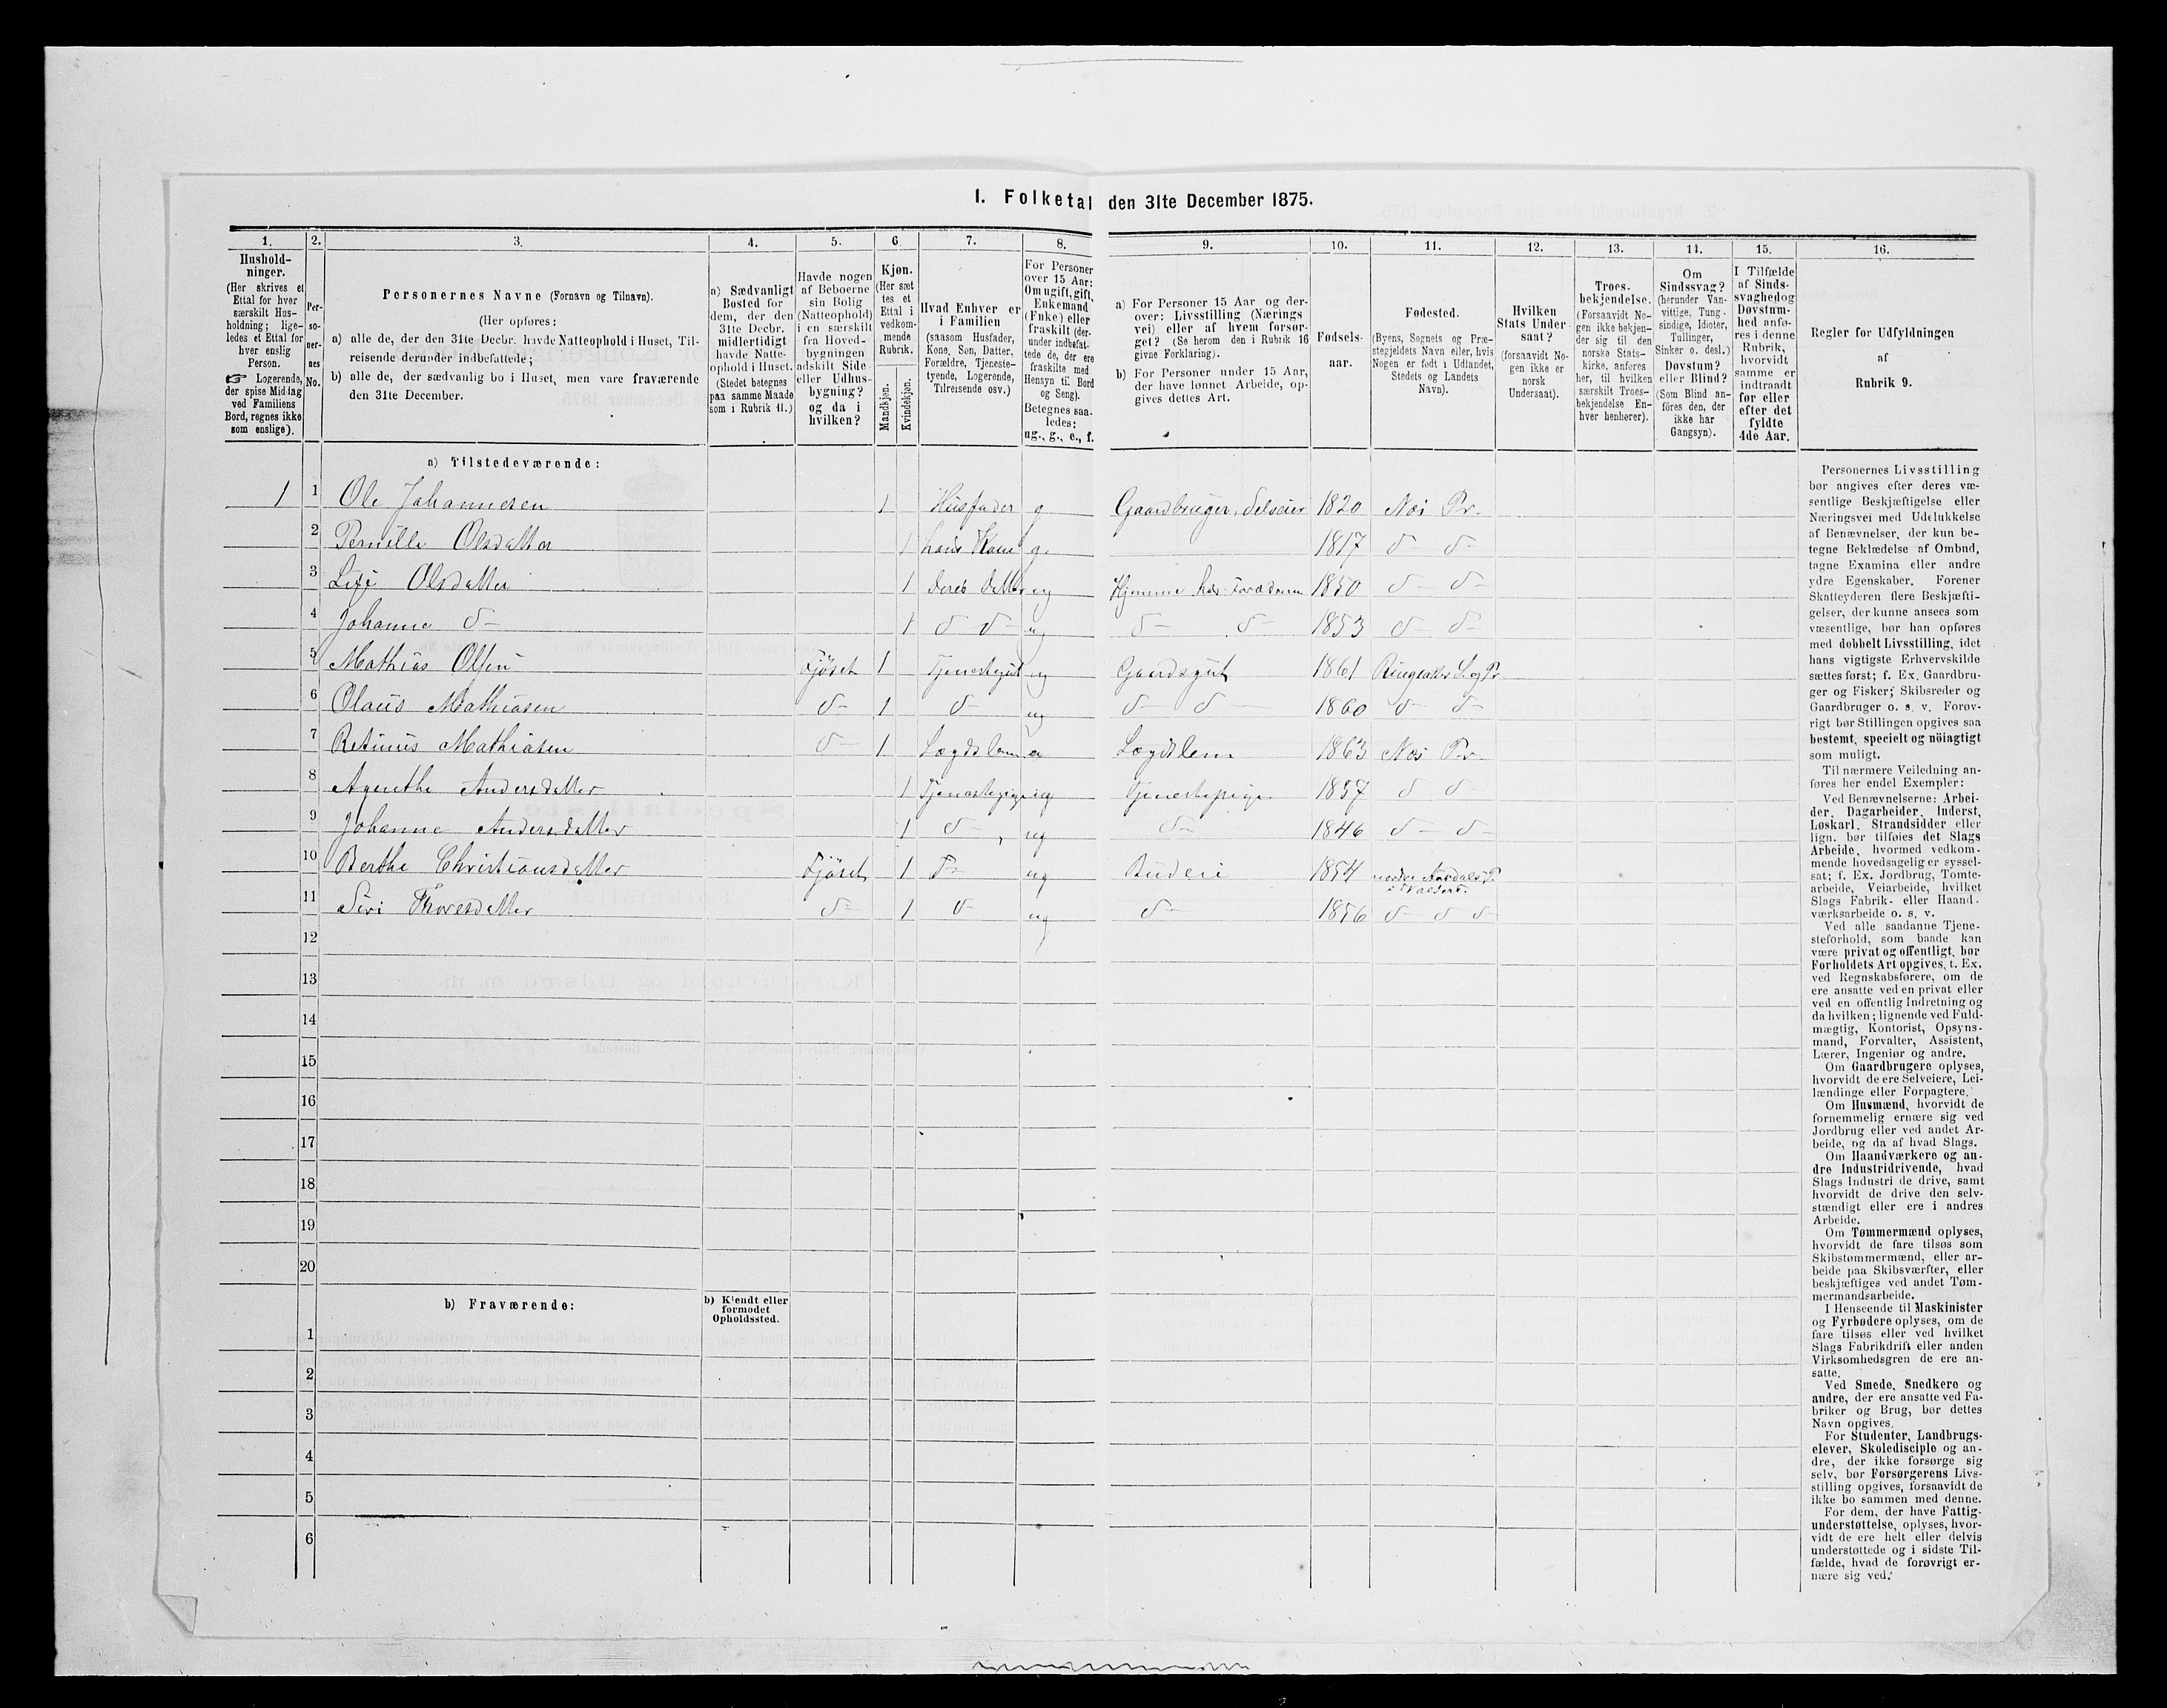 1. Folketal den 31te December 1875.
1.
Hushold-
ninger.
(Her skrives et
Ettal for hver
særskilt Hus-
holdning; lige-
ledes et Ettal for
hver enslig
Person.
☞ Logerende,
der spise Middag
ved Familiens
Bord, regnes ikke
som enslige).
2.
Per-
so-
ner-
nes
No.
3.
Personernes Navne (Fornavn og Tilnavn).
(Her opføres:
a) alle de, der den 31te Decbr. havde Natteophold i Huset, Til-
reisende derunder indbefattede;
b) alle de, der sædvanlig bo i Huset, men vare fraværende
den 31te December.
4.
a) Sædvanligt
Bosted for
dem, der den
31te Decbr.
midlertidigt
havde Natte-
ophold i Huset.
(Stedet betegnes
paa samme Maade
som i Rubrik 11.)
5.
Havde nogen
af Beboerne
sin Bolig
(Natteophold)
i en særskilt
fra Hoved-
bygningen
adskilt Side-
eller Udhus-
bygning?
og da i
hvilken?
6.
Kjøn.
(Her sæt
tes et
Ettal i
vedkom-
mende
Rubrik.
Mandkjøn.
Kvindekjøn.
7.
Hvad Enhver er
i Familien
(saasom Husfader,
Kone, Søn, Datter,
Forældre, Tjeneste-
tyende, Logerende,
Tilreisende osv.)
8.
For Personer
over 15 Aar:
Om ugift, gift,
Enkemand
(Enke) eller
fraskilt (der-
under indbefat-
tede de, der ere
fraskilte med
Hensyn til Bord
og Seng).
Betegnes saa-
ledes:
ug., g., e., f.
9.
a) For Personer 15 Aar og der-
over: Livsstilling (Nærings
vei) eller af hvem forsør-
get? (Se herom den i Rubrik 16
givne Forklaring).
b) For Personer under 15 Aar,
der have lønnet Arbeide, op-
gives dettes Art.
10.
Fødsels-
aar.
11.
Fødested.
(Byens, Sognets og Præ-
stegjeldets Navn eller, hvis
Nogen er født i Udlandet,
Stedets og Landets
Navn).
12.
Hvilken
Stats Under-
saat?
(forsaavidt No-
gen ikke er
norsk
Undersaat).
13.
Troes-
bekjendelse.
(Forsaavidt No-
gen ikke bekjen-
der sig til den
norske Stats-
kirke, anføres
her, til hvilken
særskilt Troes-
bekjendelse En-
hver henhører).
14.
Om
Sindssvag?
(herunder Van-
vittige, Tung-
sindige, Idioter,
Tullinger,
Sinker o. desl.)
Døvstum?
eller Blind?
(Som Blind an-
føres den, der
ikke har
Gangsyn).
15.
I Tilfælde
af Sinds-
svaghed og
Døvstum-
hed anfø-
res i denne
Rubrik,
hvorvidt
samme er
indtraadt
før eller
efter det
fyldte
4de Aar.
16.
Regler for Udfyldningen
af
Rubrik 9.
a) Tilstedeværende:
1 1 Ole Johannesen 1 Husfader g Gaardbruger, Selveier 1820 Næs Pr.
2 Pernille Olsdatter 1 hans Kone g. 1817 d- d-
3 Lisi Olsdatter 1 deres datter ug Hjemme hos Forældrene 1850 d- d-
4 Johanne d- 1 d d- ug d- d- 1853 d- d-
5 Mathias Olsen Fjöset 1 Tjenestegut ug Gaardsgut 1861 Ringsaker S. og Pr
6 Olaus Mathiasen d- 1 d- ug d- d 1860 d- d-
7 Mathiasen d- 1 Lægdslem Lægdslem 1863 Næs Pr.
8 Agenthe Andersdatter 1 Tjenestepige ug Tjenestepige 1857 d d-
9 Johanne Andersdatter 1 d- ug d- 1846 d- d-
10 Berthe Christiansdatter Fjöset 1 ug Budeie 1854 nedre Aurdals P. i Valders.
11 Siri Thoresdatter d- 1 d- ug d- 1856 d- d d-
12
13
14
15
16
17
18
19
20
b) Fraværende:
b) Kjendt eller
formodet
Opholdssted.
1
2
3
4
5
6
Personernes Livsstilling
bør angives efter deres væ-
sentlige Beskjæftigelse eller
Næringsvei med Udelukkelse
af Benævnelser, der kun be-
tegne Beklædelse af Ombud,
tagne Examina eller andre
ydre Egenskaber. Forener
Skatteyderen flere Beskjæfti-
gelser, der kunne ansees som
væsentlige, bør han opføres
med dobbelt Livsstilling, idet
hans vigtigste Erhvervskilde
sættes først; f. Ex. Gaardbru-
ger og Fisker; Skibsreder og
Gaardbruger o. s. v. Forøv-
rigt bør Stillingen opgives saa
bestemt, specielt og nöiagtigt
som muligt.
Til nærmere Veiledning an-
føres her endel Exempler:
Ved Benævnelserne: Arbei-
der, Dagarbeider, Inderst,
Løskarl, Strandsidder eller
lign. bør tilføies det Slags
Arbeide, hvormed vedkom-
mende hovedsagelig er syssel-
sat; f. Ex. Jordbrug, Tomte-
arbeide, Veiarbeide, hvilket
Slags Fabrik- eller Haand-
værksarbeide o. s. v.
Ved alle saadanne Tjene-
steforhold, som baade kan
være privat og offentligt, bør
Forholdets Art opgives, t. Ex.
ved Regnskabsførere, om de
ere ansatte ved en privat eller
ved en offentlig Indretning og
da hvilken; lignende ved Fuld-
mægtig, Kontorist, Opsyns-
mand, Forvalter, Assistent,
Lærer, Ingeniør og andre.
Om Gaardbrugere oplyses,
hvorvidt de ere Selveiere, Lei-
lændinge eller Forpagtere.
Om Husmænd, hvorvidt de
fornemmelig ernære sig ved
Jordbrug eller ved andet Ar-
beide, og da af hvad Slags.
Om Haandværkere og an-
dre Industridrivende, hvad
Slags Industri de drive, samt
hvorvidt de drive den selv-
stændigt eller ere i andres
Arbeide.
Om Tømmermænd oplyses,
hvorvidt de fare tilsøs som
Skibstømmermænd, eller ar-
beide paa Skibsværfter, eller
beskjæftiges ved andet Tøm-
mermandsarbeide.
I Henseende til Maskinister
og Fyrbødere oplyses, om de
fare tilsøs eller ved hvilket
Slags Fabrikdrift eller anden
Virksomhedsgren de ere an-
satte.
Ved Smede, Snedkere og
andre, der ere ansatte ved Fa-
briker og Brug, bør dettes
Navn opgives.
For Studenter, Landbrugs-
elever, Skoledisciple og an-
dre, der ikke forsørge sig
selv, bør Forsørgerens Livs-
stilling opgives, forsaavidt de
ikke bo sammen med denne.
For dem, der have Fattig-
understøttelse, oplyses, hvor-
vidt de ere helt eller delvis
understøttede og i sidste Til-
fælde, hvad de forøvrigt er-
nære sig ved.